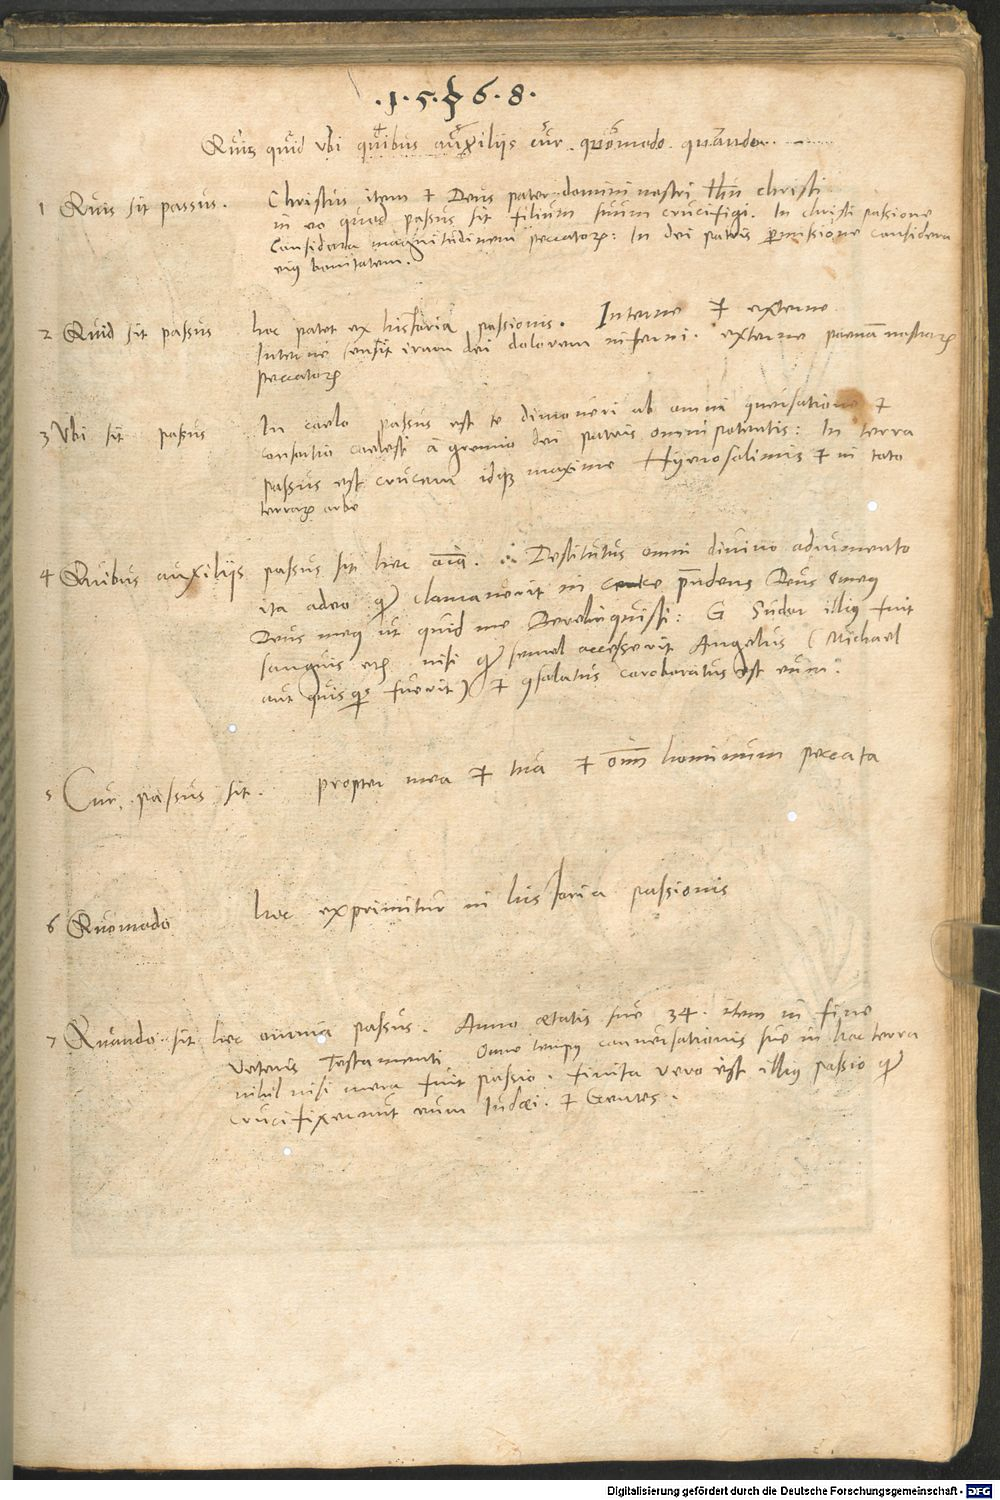 ·1·5·6·8·
Quis quid Vbi quibus auxilijs cur quomodo quando
1 Quis sit passus. Christus item et Deus pater domini nostri Ihũ christi
in eo quod passus sit filium suum crucifigi. In christi passione
Considera magnitudinem peccatoꝝ: In dei patris ꝑmissione considera
eiꝰ bonitatem.
2 Quid sit passus hoc patet ex historia passionis. Interne et externe
Interne sensit iram dei dolorem inferni. externe poenā nostraꝝ
peccatoꝝ
3 Vbi sit passus In caelo passus est se dimoveri ab omni ꝯversatione et
consortio caelesti a gremio dei patris omnipotentis: In terra
passus est crucem idqꝫ maxime Hyerosolimis et in toto
terraꝝ orbe
4 Quibus auxilijs passus sit hec oīa. Destitutus omni divino adiumento
ita adeo qꝫ clamaverit in cruce pendens Deus meꝰ
Deus meꝰ ut quid me Dereliquisti: Sudor illiꝰ fuit
sanguis nisi qꝫ semel accesserit Angelus (Michael
aut quisqꝫ fuerit) et ꝯsolatus coroboratus est eum.
5 Cur passus sit. propter mea et tua et oīm hominum peccata
6 Quomodo hoc exprimitur in historia passionis
7 Quando sit hec omnia passus. Anno ætatis sue 34. item in fine
Veteris Testamenti Omne tempꝰ conversationis sue in hac terra
nihil nisi mera fuit passio. finita vero est illiꝰ passio qꝫ
crucifixerunt eum Iudæi et Gentes.
Digitalisierung gefördert durch die Deutsche Forschungsgemeinschaft - DFG